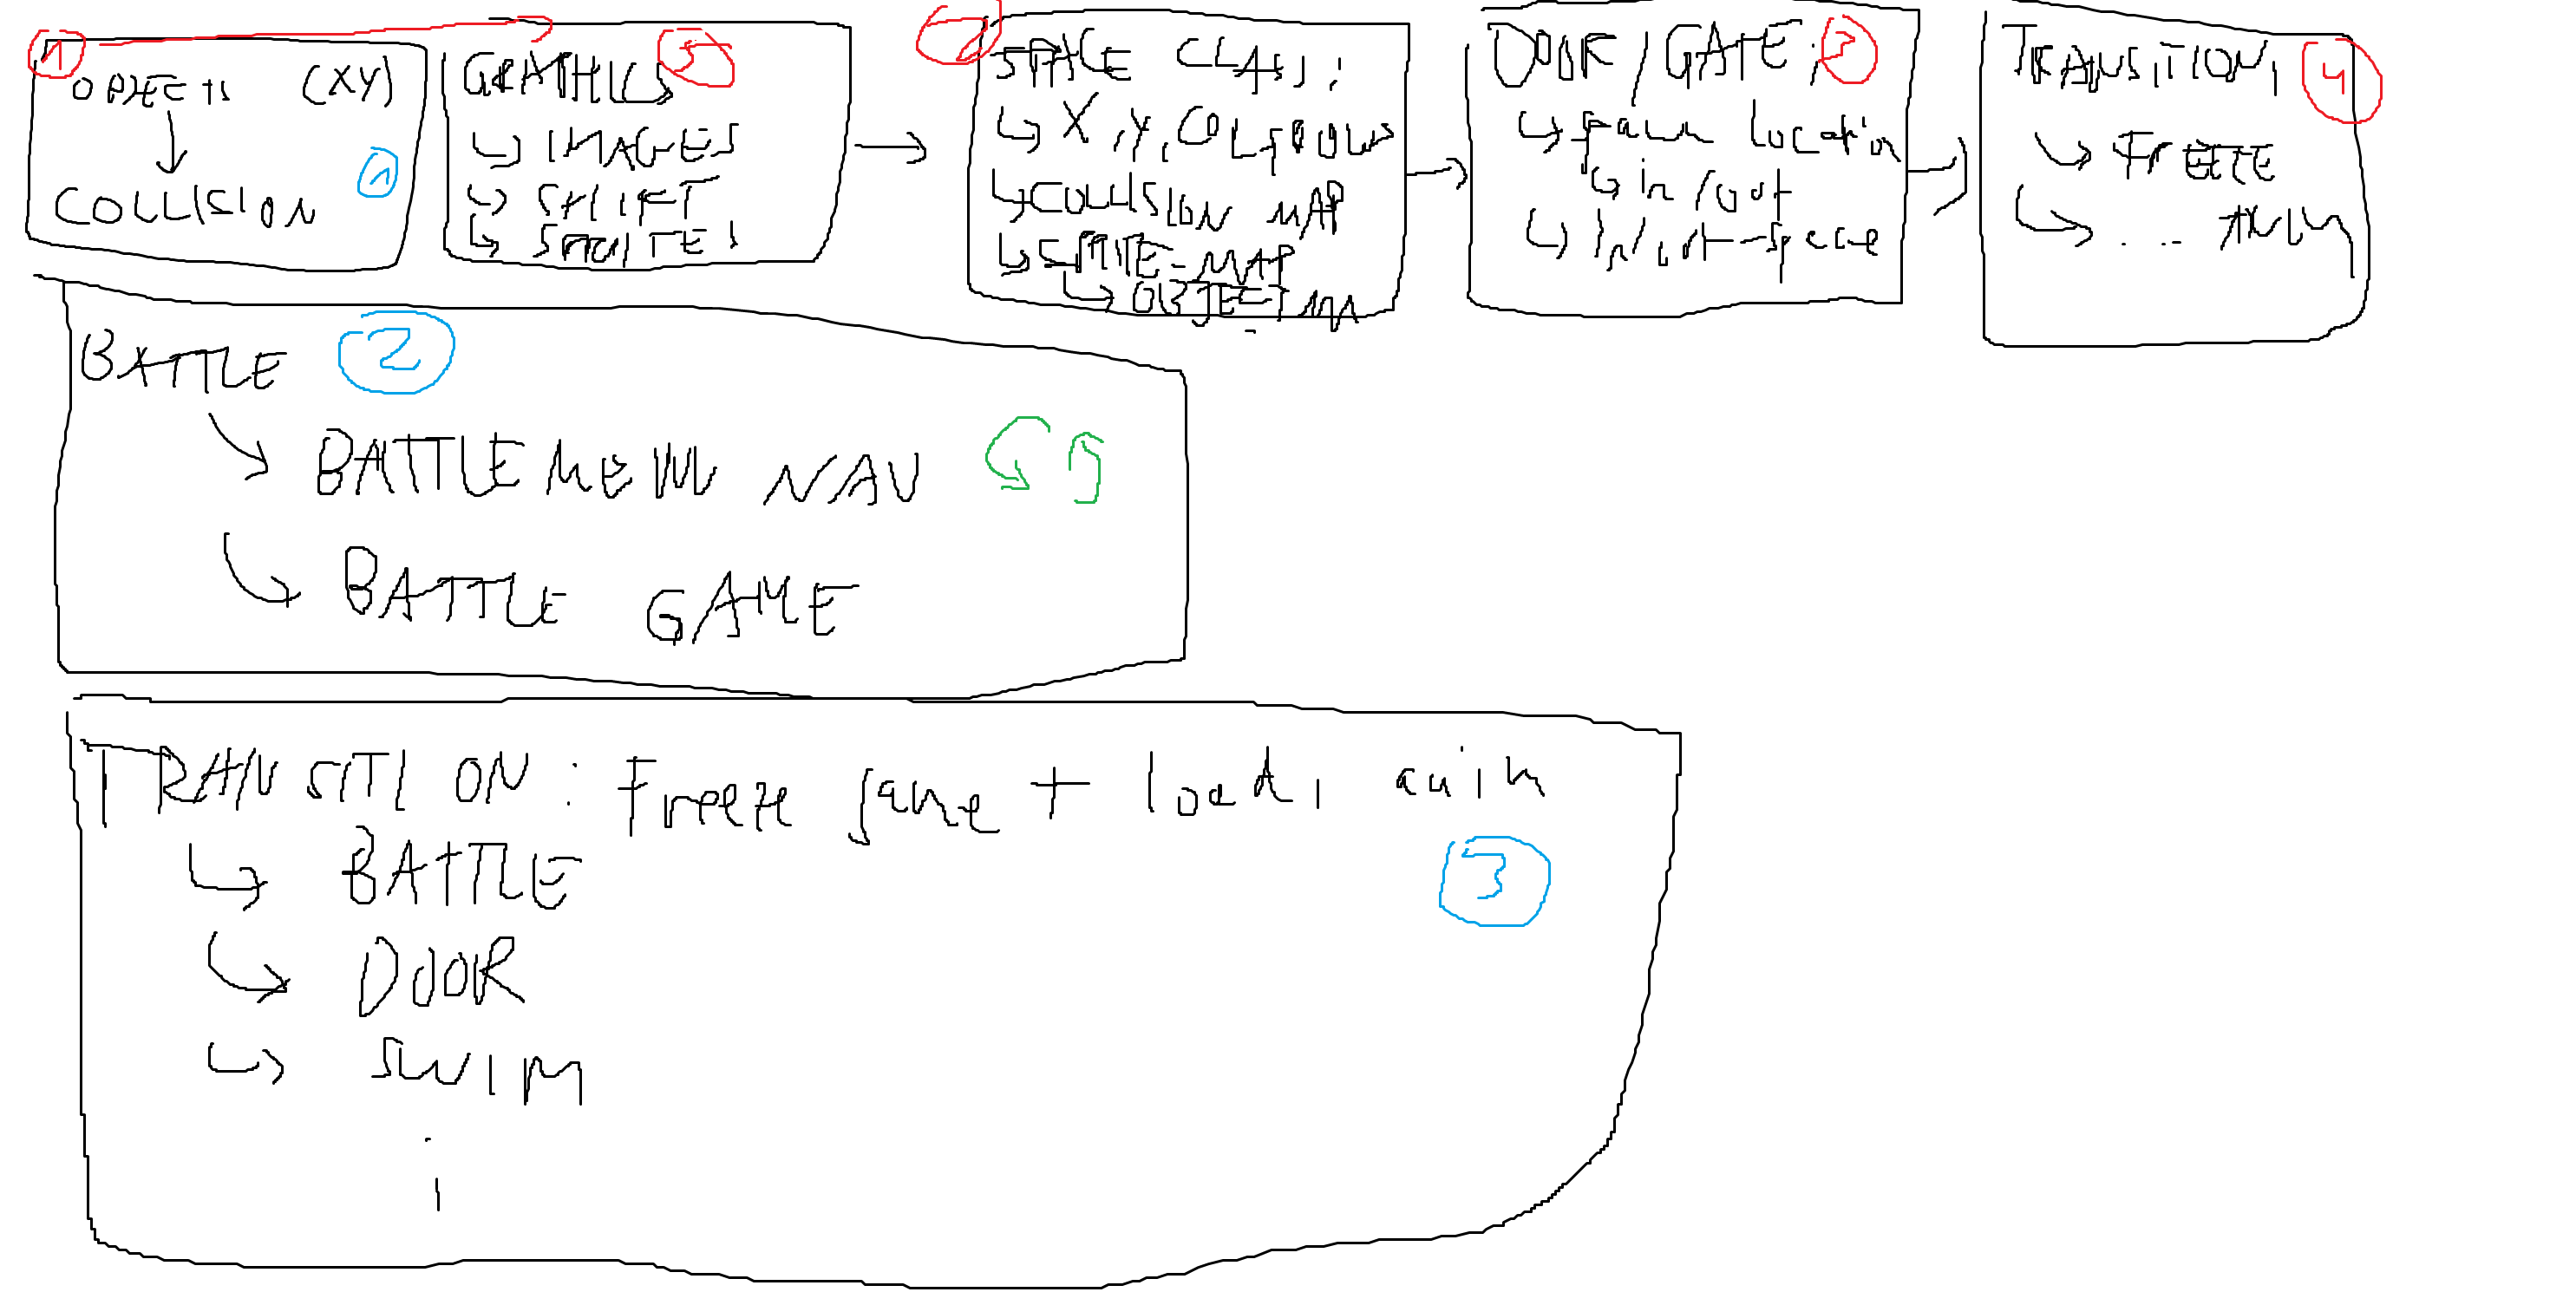 1
OBJECTS (XY)
1
COLLISION
GRAPHICS 5
IMAGES
SPLIT
SPRITES
SPACE CLASS:
X, Y, COLS, ROWS
COLLISION MAP
SPRITE-MAP
OBJECT MA
DOOR/GATE:
spawn location
in/out
in/out-space
TRANSITION, 4
FREEZE
... ANIM
BATTLE 2
BATTLE MENU NAV
BATTLE GAME
TRANSITION: Freeze game + load, anim
3
BATTLE
DOOR
SWIM